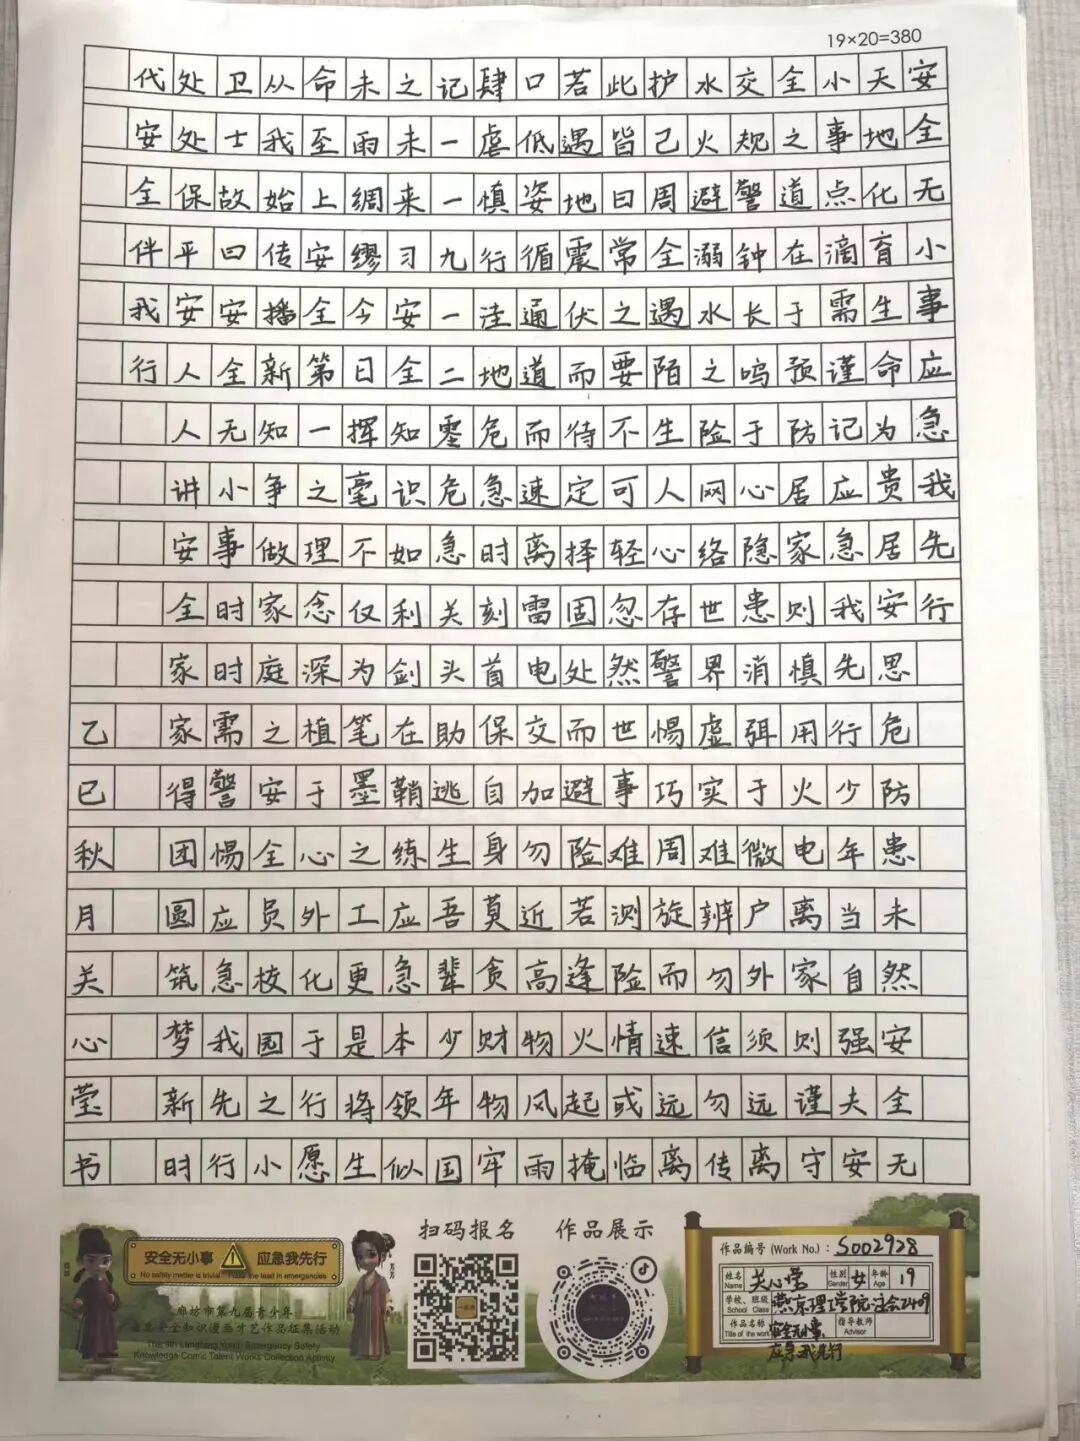 19×20=380
安全无小事应急我先行
天地化育生命为贵居安思危防患未然安全无
小事点滴需谨记应急我先行少年当自强夫安
全之道在于预防居家则慎用火电离家则谨守
交规警钟长鸣于心隐患消弭于微户外须远离
水火避溺水之险网络世界虚实难辨勿信勿传
护己周全遇陌生人心存警惕巧周旋而速远
离此皆日常之要不可轻忽然而世事难测险情或临
若遇地震循道而速择固处而避险若逢火起掩
口低姿循通道而速离雷电交加勿近高物风雨
肆虐慎行洼地危急时刻首保自身勿贪财物牢
记一一九一二零危急关头助逃生吾辈少年国
之未来习安全知识如利剑在鞘练应急本领似
未雨绸缪今日挥毫不仅为笔墨之工更是将生
命至上安全第一之理念深植于心外化于行愿
从我始传播新知争做家庭之安全员校园之小
卫士故曰安全无小事时时需警惕应急我先行
处处保平安人人讲安全家家得团圆筑梦新时
代安全伴我行
乙巳秋月关心莹书
安全无小事 应急我先行
No safety matter is trivial Take the lead in emergencies
廊坊市第九届青少年
应急安全知识漫画才艺作品征集活动
The 9th Langfang Youth Emergency Safety
Knowledge Comic Talent Works Collection Activity
扫码报名
作品展示
作品编号 (Work No.): S002928
姓名 Name 关心莹 性别 Gender 女 年龄 Age 19
学校、班级 School Class 燕京理工学院 注会2409
作品名称 Title of the work 安全无小事,应急我先行 指导教师 Advisor